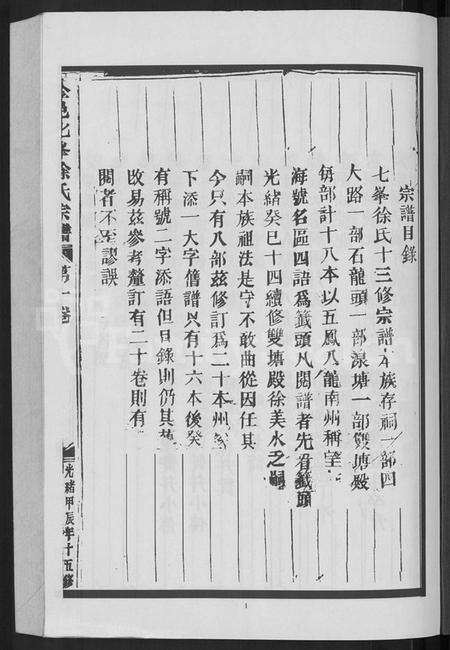 宗譜目錄
七峯徐氏十三修宗譜本族存祠一部四
大路一部石龍頭一部湶塘一部雙塘殿
每部計十八本以五鳳八龍南州稱望
海號名區四語爲籤頭凡閱譜者先看籤頭
光緒癸巳十四續修雙塘殿徐美水之嗣
嗣本族祖法是字不敢曲從因任其
今只有八部茲修訂爲二十本州
下添一大字僭譜只有十六本後癸
有稱號二字添語但目錄則仍其舊
改易茲參考釐訂有二十卷則有
閱者不至謬誤
邑七峯徐氏宗譜
第一卷
光緒甲辰年十五修
1